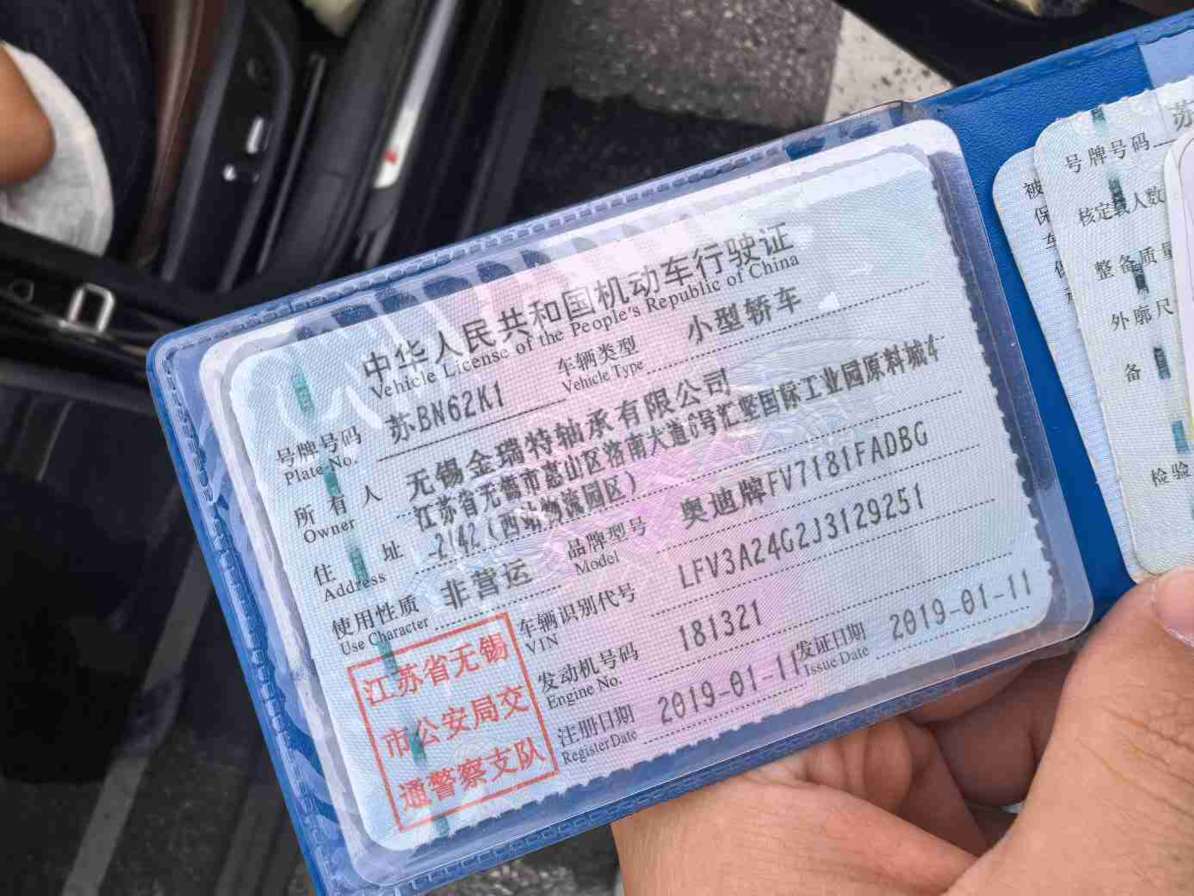 中华人民共和国机动车行驶证
Vehicle License of the People's Republic of China
号牌号码 苏BN62K1 车辆类型 小型轿车
Plate No. Vehicle Type
所有人 无锡金瑞特轴承有限公司
Owner
住址 江苏省无锡市惠山区洛南大道6号汇坚国际工业园原料城4
Address -2142(西站物流园区)
使用性质 非营运 品牌型号 奥迪牌FV7181FADBG
Use Character Model
车辆识别代号 LFV3A24G2J3129251
VIN
发动机号码 181321
Engine No.
注册日期 2019-01-11 发证日期 2019-01-11
Register Date Issue Date
江苏省无锡
市公安局交
通警察支队
号牌号码 苏
核定载人数
整备质量
外廓尺
备
检验
被
保
车